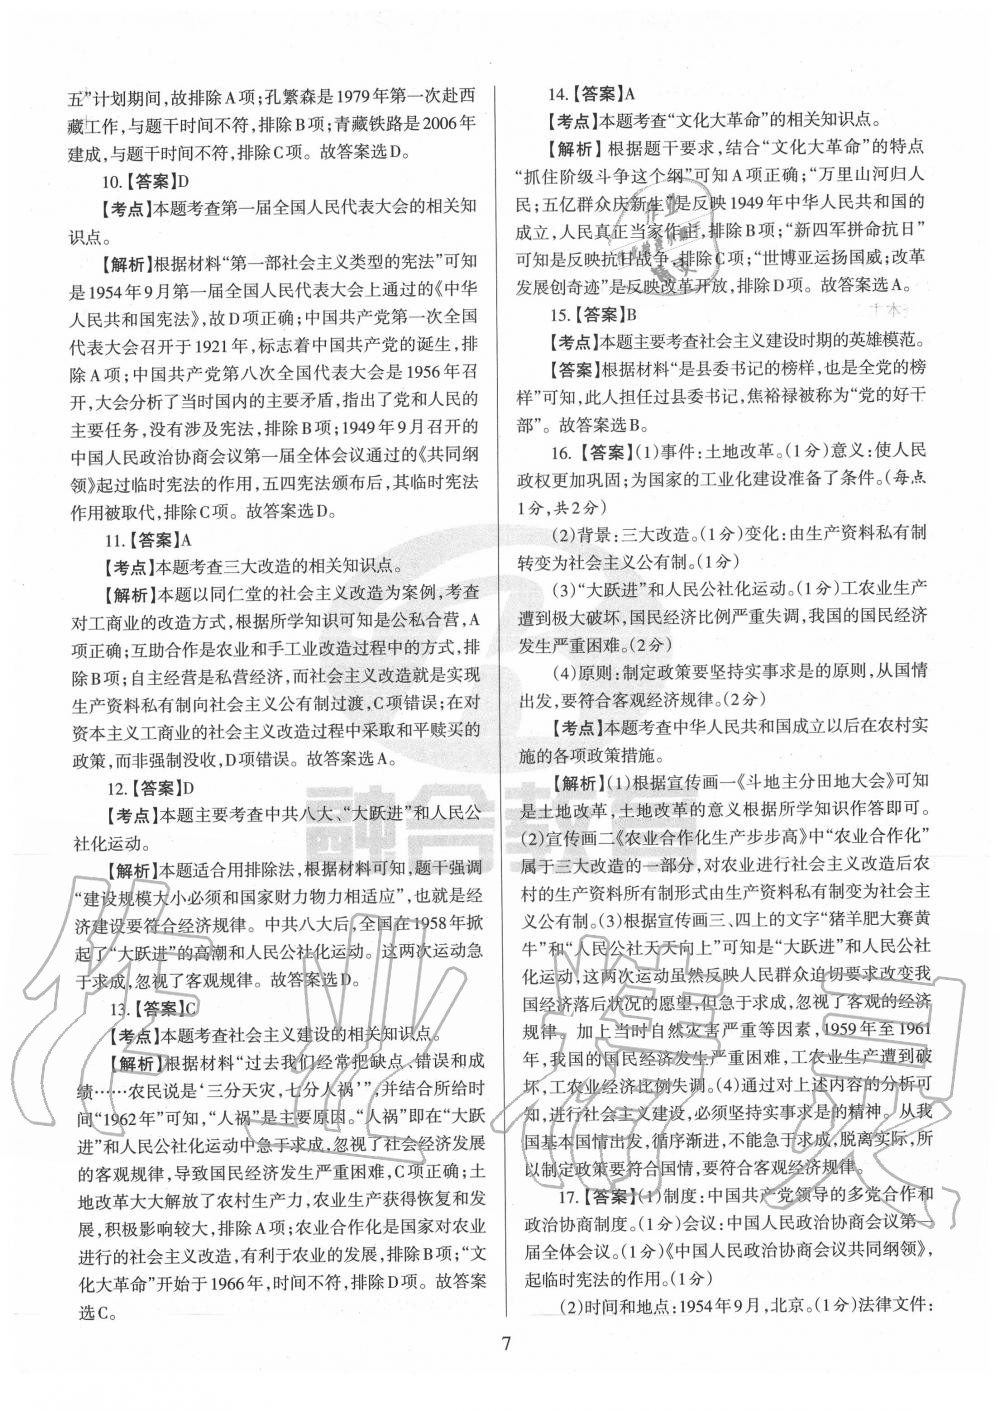 五”计划期间,故排除A项;孔繁森是1979年第一次赴西
藏工作,与题干时间不符,排除B项;青藏铁路是2006年
建成,与题干时间不符,排除C项。故答案选D。
10.【答案】D
【考点】本题考查第一届全国人民代表大会的相关知
识点。
【解析】根据材料“第一部社会主义类型的宪法”可知
是1954年9月第一届全国人民代表大会上通过的《中华
人民共和国宪法》,故D项正确;中国共产党第一次全国
代表大会召开于1921年,标志着中国共产党的诞生,排
除A项;中国共产党第八次全国代表大会是1956年召
开,大会分析了当时国内的主要矛盾,指出了党和人民的
主要任务,没有涉及宪法,排除B项;1949年9月召开的
中国人民政治协商会议第一届全体会议通过的《共同纲
领》起过临时宪法的作用,五四宪法颁布后,其临时宪法
作用被取代,排除C项。故答案选D。
11.【答案】A
【考点】本题考查三大改造的相关知识点。
【解析】本题以同仁堂的社会主义改造为案例,考查
对工商业的改造方式,根据所学知识可知是公私合营,A
项正确;互助合作是农业和手工业改造过程中的方式,排
除B项;自主经营是私营经济,而社会主义改造就是实现
生产资料私有制向社会主义公有制过渡,C项错误;在对
资本主义工商业的社会主义改造过程中采取和平赎买的
政策,而非强制没收,D项错误。故答案选A。
12.【答案】D
【考点】本题主要考查中共八大、“大跃进”和人民公
社化运动。
【解析】本题适合用排除法,根据材料可知,题干强调
“建设规模大小必须和国家财力物力相适应”,也就是经
济建设要符合经济规律。中共八大后,全国在1958年掀
起了“大跃进”的高潮和人民公社化运动。这两次运动急
于求成,忽视了客观规律。故答案选D。
13.【答案】C
【考点】本题考查社会主义建设的相关知识点。
【解析】根据材料“过去我们经常把缺点、错误和成
绩……农民说是‘三分天灾,七分人祸’”,并结合所给时
间“1962年”可知,“人祸”是主要原因。“人祸”即在“大跃
进”和人民公社化运动中急于求成,忽视了社会经济发展
的客观规律,导致国民经济发生严重困难,C项正确;土
地改革大大解放了农村生产力,农业生产获得恢复和发
展,积极影响较大,排除A项;农业合作化是国家对农业
进行的社会主义改造,有利于农业的发展,排除B项;“文
化大革命”开始于1966年,时间不符,排除D项。故答案
选C。
14.【答案】A
【考点】本题考查“文化大革命”的相关知识点。
【解析】根据题干要求,结合“文化大革命”的特点
“抓住阶级斗争这个纲”可知A项正确;“万里山河归人
民;五亿群众庆新生”是反映1949年中华人民共和国的
成立,人民真正当家作主,排除B项;“新四军拼命抗日”
可知是反映抗日战争,排除C项;“世博亚运扬国威;改革
发展创奇迹”是反映改革开放,排除D项。故答案选A。
15.【答案】B
【考点】本题主要考查社会主义建设时期的英雄模范。
【答案】根据材料“是县委书记的榜样,也是全党的榜
样”可知,此人担任过县委书记,焦裕禄被称为“党的好干
部”。故答案选B。
16.【答案】(1)事件:土地改革。(1分)意义:使人民
政权更加巩固;为国家的工业化建设准备了条件。(每点
1分,共2分)
(2)背景:三大改造。(1分)变化:由生产资料私有制
转变为社会主义公有制。(1分)
(3)“大跃进”和人民公社化运动。(1分)工农业生产
遭到极大破坏,国民经济比例严重失调,我国的国民经济
发生严重困难。(2分)
(4)原则:制定政策要坚持实事求是的原则,从国情
出发,要符合客观经济规律。(2分)
【考点】本题考查中华人民共和国成立以后在农村实
施的各项政策措施。
【解析】(1)根据宣传画一《斗地主分田地大会》可知
是土地改革,土地改革的意义根据所学知识作答即可。
(2)宣传画二《农业合作化生产步步高》中“农业合作化”
属于三大改造的一部分,对农业进行社会主义改造后农
村的生产资料所有制形式由生产资料私有制变为社会主
义公有制。(3)根据宣传画三、四上的文字“猪羊肥大赛黄
牛”和“人民公社天天向上”可知是“大跃进”和人民公社
化运动,这两次运动虽然反映人民群众迫切要求改变我
国经济落后状况的愿望,但急于求成,忽视了客观的经济
规律。加上当时自然灾害严重等因素,1959年至1961
年,我国的国民经济发生严重困难,工农业生产遭到破
坏,工农业经济比例失调。(4)通过对上述内容的分析可
知,进行社会主义建设,必须坚持实事求是的精神。从我
国基本国情出发,循序渐进,不能急于求成,脱离实际,所
以制定政策要符合国情,要符合客观经济规律。
17.【答案】(1)制度:中国共产党领导的多党合作和
政治协商制度。(1分)会议:中国人民政治协商会议第一
届全体会议。(1分)《中国人民政治协商会议共同纲领》,
起临时宪法的作用。(1分)
(2)时间和地点:1954年9月,北京。(1分)法律文件:
7
融合教育
作业精灵